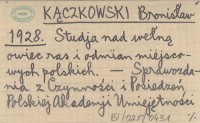 KĄCZKOWSKI Bronisław
1928. Studja nad wełną
owiec ras i odmian miejsco-
wych polskich. — Sprawozda-
nia z Czynności i Posiedzeń
Polskiej Akademji Umiejętności